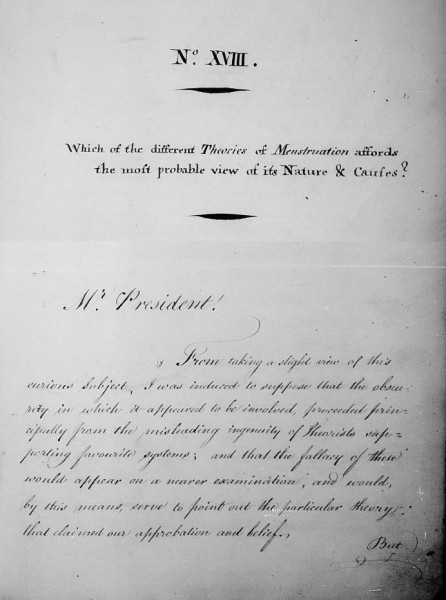 Nº XVIII.
Which of the different Theories of Menstruation affords
the moſt probable view of its Nature & Cauſes?
Mr President!
From taking a slight view of this
curious Subject, I was induced to suppose that the obscu=
rity in which it appeared to be involved, proceeded prin=
cipally from the misleading ingenuity of Theorists sup=
porting favourite systems; and that the fallacy of these
would appear on a nearer examination, and would,
by this means, serve to point out the particular theory,
that claimed our approbation and belief.
But